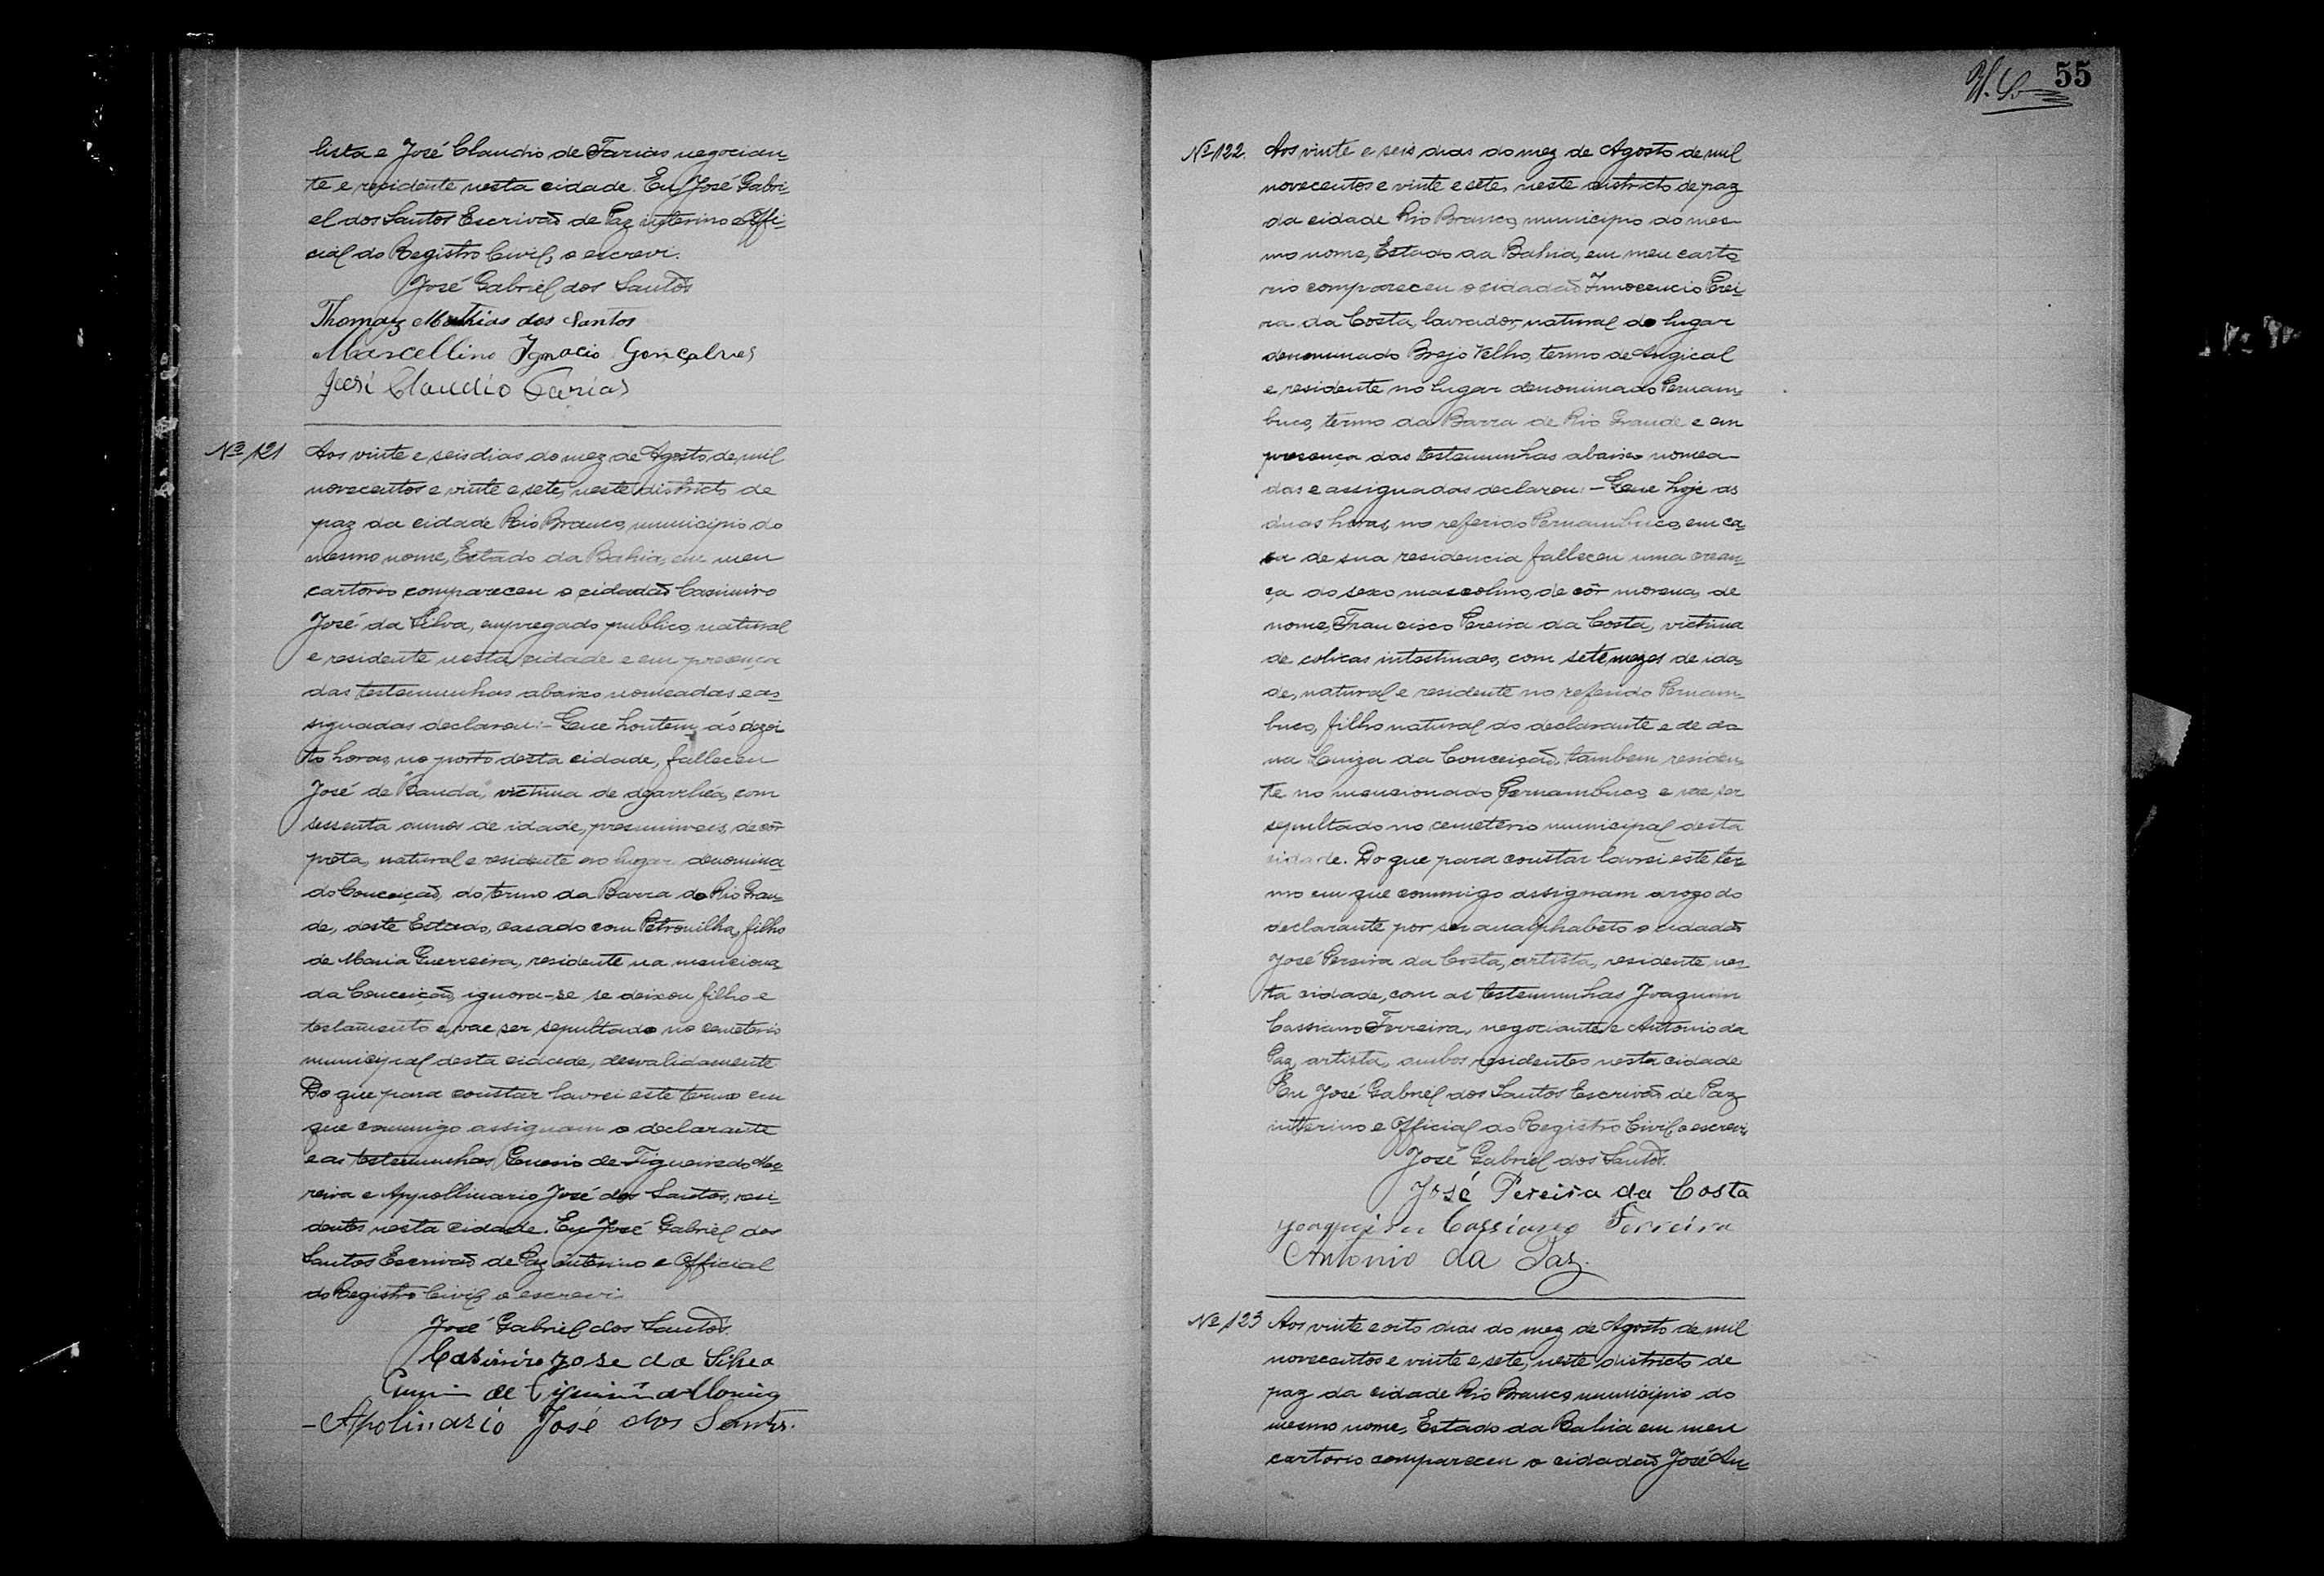 lista e José Claudio de Farias negocian-
te e residente nesta cidade. Eu José Gabri-
el dos Santos Escrivão de Paz interino e Offi-
cial do Registro Civil, o escrevi.
José Gabriel dos Santos
Thomaz Mathias dos Santos
Marcellino Ignacio Gonçalves
José Claudio Farias
Nº 121 Aos vinte e seis dias do mez de Agosto de mil
novecentos e vinte e sete, neste districto de
paz da cidade Rio Branco, municipio do
mesmo nome, Estado da Bahia, em meu
cartorio compareceu o cidadão Casimiro
José da Silva, empregado publico, natural
e residente nesta cidade e em presença
das testemunhas abaixo nomeadas e as-
signadas declarou:- Que hontem, ás dezoi
to horas, no porto desta cidade, falleceu
José de "Banda", victima de dyarrhéa, com
sessenta annos de idade, presumiveis, de côr
preta, natural e residente no lugar denomina
do Conceição, do termo da Barra do Rio Gran-
de, deste Estado, casado com Petronilha, filho
de Maria Guerreira, residente na menciona-
da Conceição, ignora-se se deixou filho e
testamento e vae ser sepultado no cemeterio
municipal desta cidade, desvalidamente
Do que para constar lavrei este termo em
que commigo assignam o declarante
e as testemunhas Genesio de Figueiredo Mo-
reira e Appollinario José dos Santos, resi-
dentes nesta cidade. Eu José Gabriel dos
Santos Escrivão de Paz interino e Official
do Registro Civil, o escrevi.
José Gabriel dos Santos.
Casimiro Jose da Silva
de
-Apolinario José dos Santos.
55
Nº 122. Aos vinte e seis dias do mez de Agosto de mil
novecentos e vinte e sete, neste districto de paz
da cidade Rio Branco, municipio do mes-
mo nome, Estado da Bahia, em meu carto
rio compareceu o cidadão Innocencio Perei-
ra da Costa, lavrador, natural do lugar
denominado Brejo Velho, termo de Angical
e residente no lugar denominado Pernam-
buco, termo da Barra do Rio Grande e em
presença das testemunhas abaixo nomea-
das e assignadas declarou:- Que hoje as
duas horas, no referido Pernambuco, em ca-
sa de sua residencia falleceu uma crean-
ça do sexo mascolino, de côr morena, de
nome, Francisco Pereira da Costa, victima
de colicas intestinaes, com sete mezes de ida-
de, natural e residente no referido Pernam-
buco, filho natural do declarante e de do
na Luiza da Conceição, tambem residen-
te no mencionado Pernambuco, e vae ser
sepultado no cemeterio municipal desta
cidade. Do que para constar lavrei este ter-
mo em que commigo assignam a rogo do
declarante por ser analphabeto o cidadão
José Pereira da Costa, artista, residente nes-
ta cidade, com as testemunhas Joaquim
Cassiano Ferreira, negociante e Antonio da
Paz, artista, ambos residentes nesta cidade
Eu José Gabriel dos Santos Escrivão de Paz
interino e Official do Registro Civil, o escrevi.
José Gabriel dos Santos.
José Pereira da Costa
Joaquim Cassiano Ferreira
Antonio da Paz.
Nº 123 Aos vinte e oito dias do mez de Agosto de mil
novecentos e vinte e sete, neste districto de
paz da cidade Rio Branco, municipio do
mesmo nome, Estado da Bahia em meu
cartorio compareceu o cidadão José An-